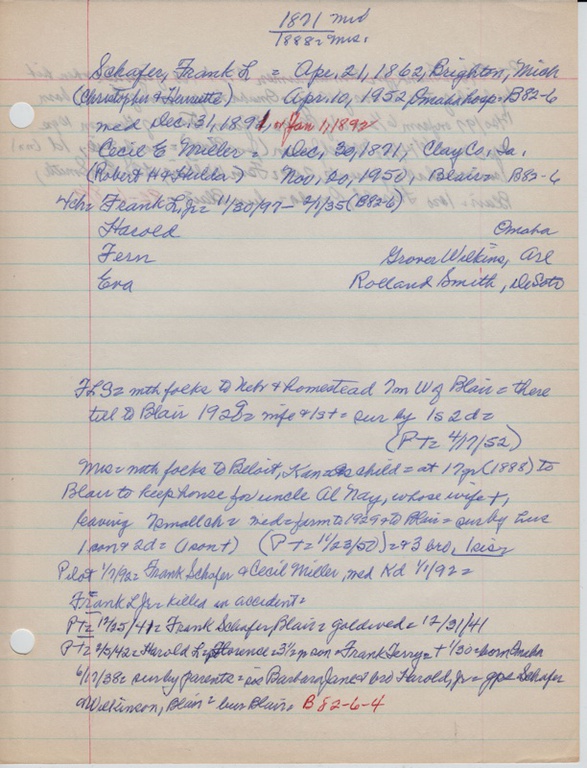 1871 mrs
1888= mrs.
Schafer, Frank L = Apr. 21, 1862, Brighton, Mich
(Christopher & Harriette) = Apr. 10, 1952, Omaha hosp = B82-6
med Dec. 31, 1891, or Jan 1, 1892
Cecil E Miller = Dec, 30, 1871, Clay Co, Ia.
(Robert H & Hulda) Nov, 20, 1950, Blair = B82-6
4ch= Frank L, Jr= 11/30/97 - 2/1/35 (B82-6)
Harold Omaha
Fern Grover Wilkins, Arl
Eva Rolland Smith, DeSoto
FLS= with folks to Nebr & homestead 7m W of Blair = there
till to Blair 1929= wife & 1st = sur by 1s 2d=
(Pt= 4/17/52)
Mrs= with folks to Beloit, Kan= as child = at 17yr (1888) to
Blair to keep house for uncle Al Nay, whose wife +,
leaving 7 small ch= med= farm to 1929 & to Blair = sur by hus
1 son & 2d= (1 son +) (Pt= 11/23/50) = & 3 bro, 1 sis=
Pilot 1/7/92= Frank Schafer & Cecil Miller, med Kd 1/1/92=
Frank L Jr= killed in accident=
Pt= 12/25/41= Frank Schafer, Blair= gold wed= 12/31/41
Pt= 2/5/42= Harold L= Florence= 3½ yr son= Frank Terry= + 1/30= born Omaha
6/17/38= sur by parents= sis Barbara Jane & bro Harold, Jr= gps Schafer
& Wilkinson, Blair= bur Blair= B82-6-4